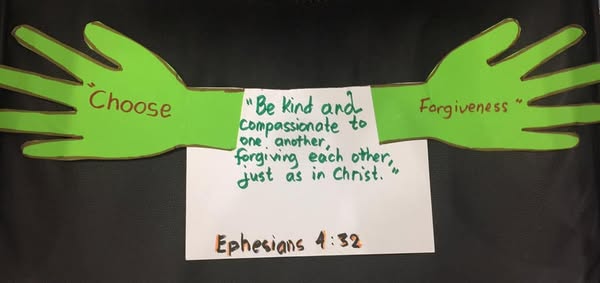 "Choose
"Be kind and
compassionate to
one another,
forgiving each other,
just as in Christ."
Ephesians 4:32
Forgiveness"